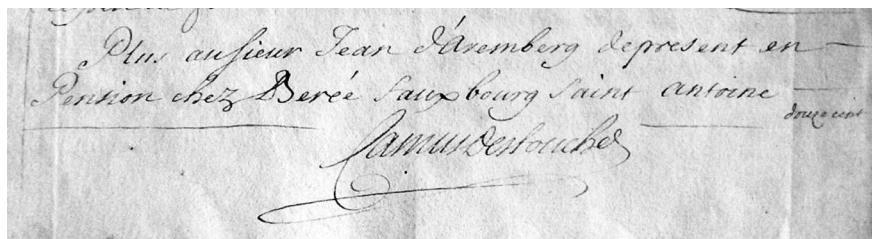 Plus au sieur Jean d'Aremberg depresent en
Pension chez Berée fauxbourg saint antoine
douze cent
Camus Destouches